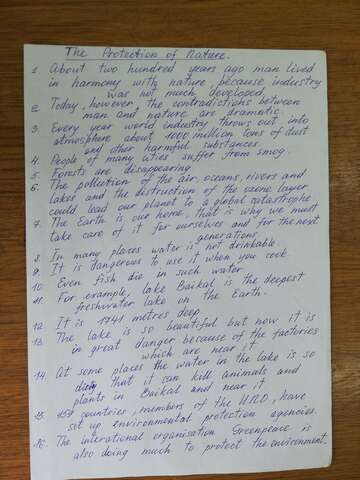 The Protection of Nature.
1. About two hundred years ago man lived
in harmony with nature, because industry
was not much developed.
2. Today, however, the contradictions between
man and nature are dramatic.
3. Every year world industry throws out into
atmosphere about 1000 million tons of dust
and other harmful substances.
4. People of many cities suffer from smog.
5. Forests are disappearing
6. The pollution of the air, oceans, rivers and
lakes and the distruction of the ozone layer
could lead our planet to a global catastrophe
7. The Earth is our home, that is why we must
take care of it for ourselves and for the next
generations
8. In many places water is not drinkable
9. It is dangerous to use it when you cook
10. Even fish die in such water
11. For example, lake Baikal is the deepest
freshwater lake on the Earth.
12. It is 1741 metres deep
13. The lake is so beautiful but now it is
in great danger because of the factories
which are near it
14. At some places the water in the lake is so
dirty that it can kill animals and
plants in Baikal and near it
15. 159 countries, members of the UNO, have
set up environmental protection agencies.
16. The interational organisation Greenpeace is
also doing much to protect the environment.